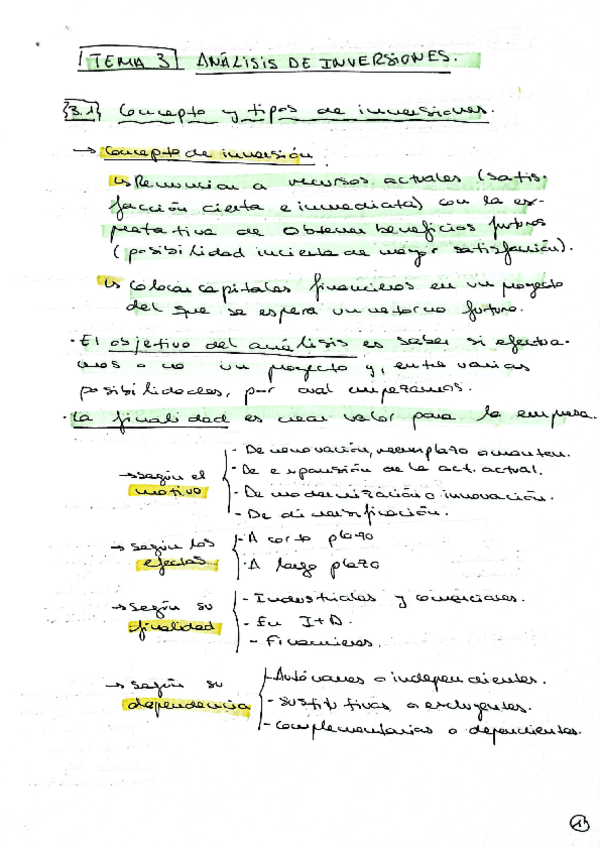 TEMA 3 ANÁLISIS DE INVERSIONES.
3.1 Concepto y tipos de inversiones.
→ Concepto de inversión
↳ Renunciar a recursos actuales (satis-
facción cierta e inmediata) con la ex-
pectativa de obtener beneficios futuros
(posibilidad incierta de mayor satisfacción).
↳ Colocar capitales financieros en un proyecto
del que se espera un retorno futuro.
· El objetivo del análisis es saber si efectua-
mos o no un proyecto y, entre varias
posibilidades, por cual empezamos.
· La finalidad es crear valor para la empresa.
→ según el motivo
- De renovación, reemplazo o manten.
- De expansión de la act. actual.
- De modernización o innovación.
- De diversificación.
→ según los efectos
- A corto plazo
- A largo plazo
→ según su finalidad
- Industriales y comerciales.
- En I+D.
- Financieros.
→ según su dependencia
- Autónomas o independientes.
- Sustitutivas o excluyentes.
- Complementarias o dependientes.
1